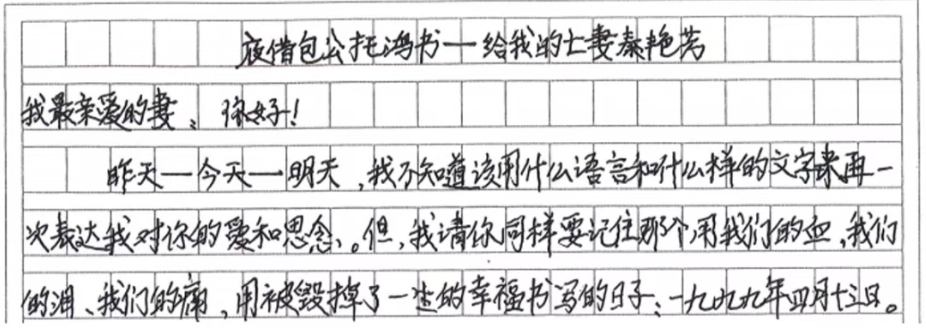 夜借包公托鸿书一给我的亡妻秦艳芳
我最亲爱的妻、你好！
昨天一今天一明天，我不知道该用什么语言和什么样的文字来再一
次表达我对你的爱和思念。但，我请你同样要记住那个用我们的血，我们
的泪、我们的痛，用被毁掉了一生的幸福书写的日子：一九九九年四月十三日。